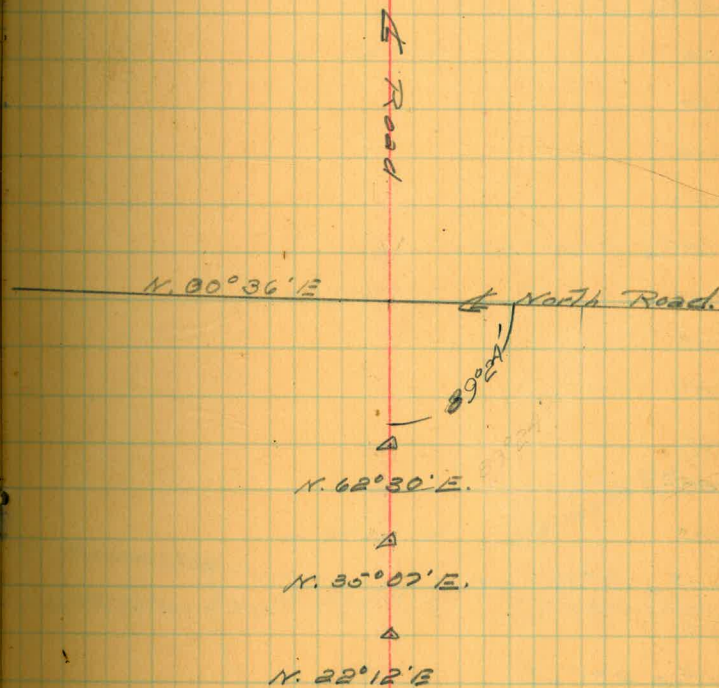 ℄ Road
N. 00°36'E
℄ North Road.
89°24'
N. 62°30'E.
N. 35°07'E.
N. 22°12'E